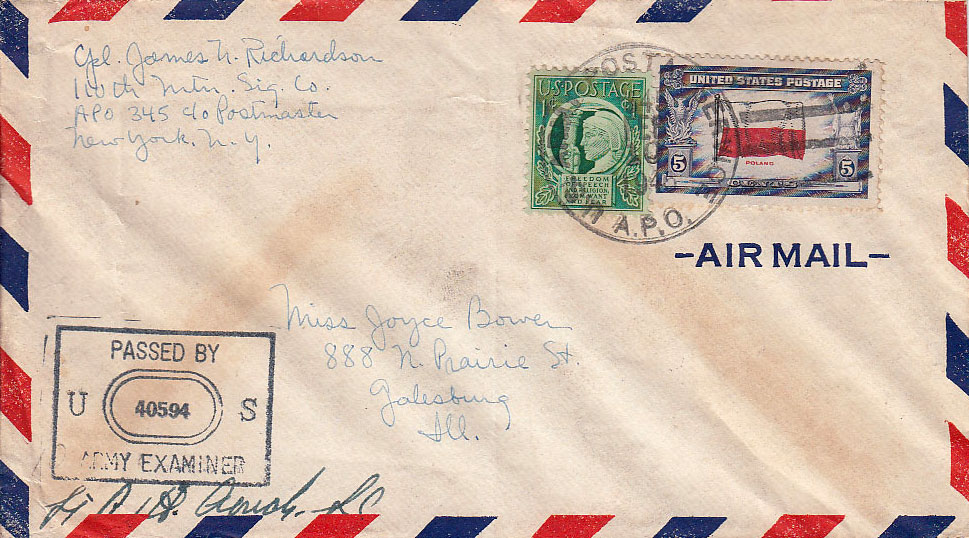 Cpl. James N. Richardson
110th Mtn. Sig. Co.
APO 345 c/o Postmaster
New York. N.Y.
U.S. POSTAGE
1¢
FREEDOM
OF SPEECH
AND RELIGION,
FROM WANT
AND FEAR
UNITED STATES POSTAGE
5
POLAND
5
A.P.O.
-AIR MAIL-
Miss Joyce Bower
888 N. Prairie St.
Galesburg
Ill.
PASSED BY
U 40594 S
ARMY EXAMINER
Lt A. H.